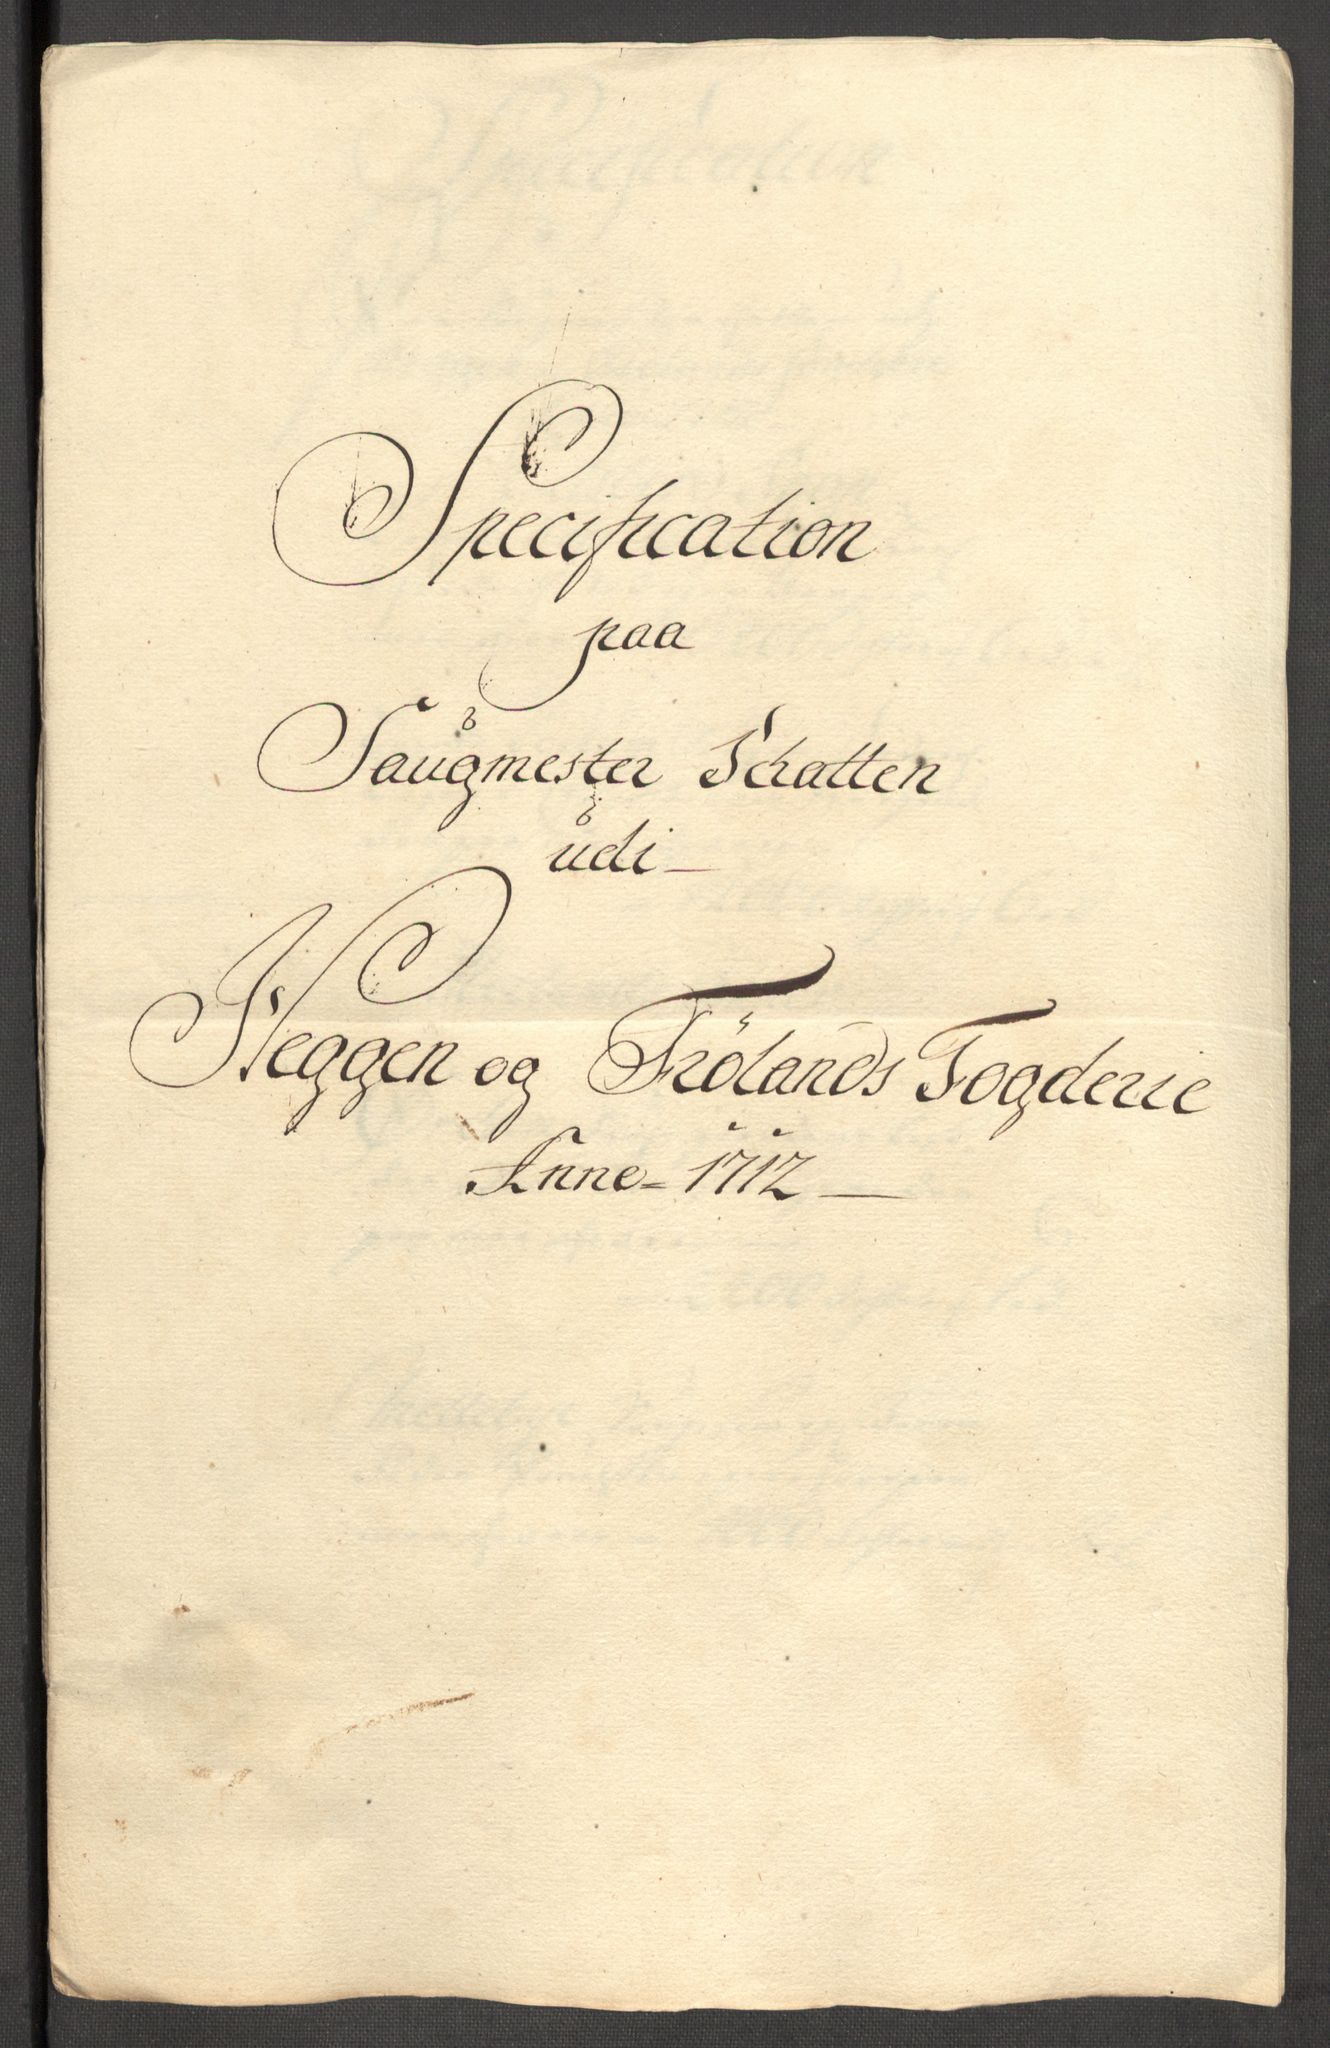 Specification
paa
Saugmester Schatten
udi
Heggen og Frölands Fogderie
Anno 1712